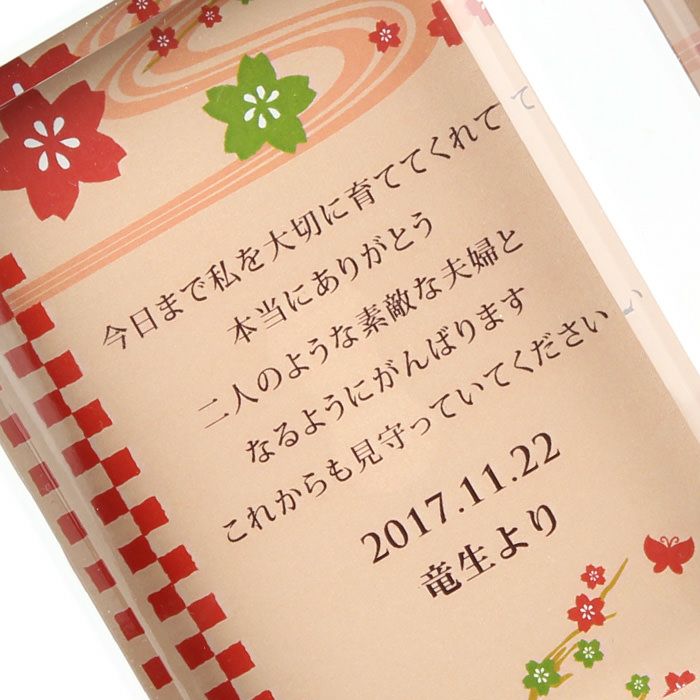 今日まで私を大切に育ててくれて
本当にありがとう
二人のような素敵な夫婦と
なるようにがんばります
これからも見守っていてください
2017.11.22
竜生より